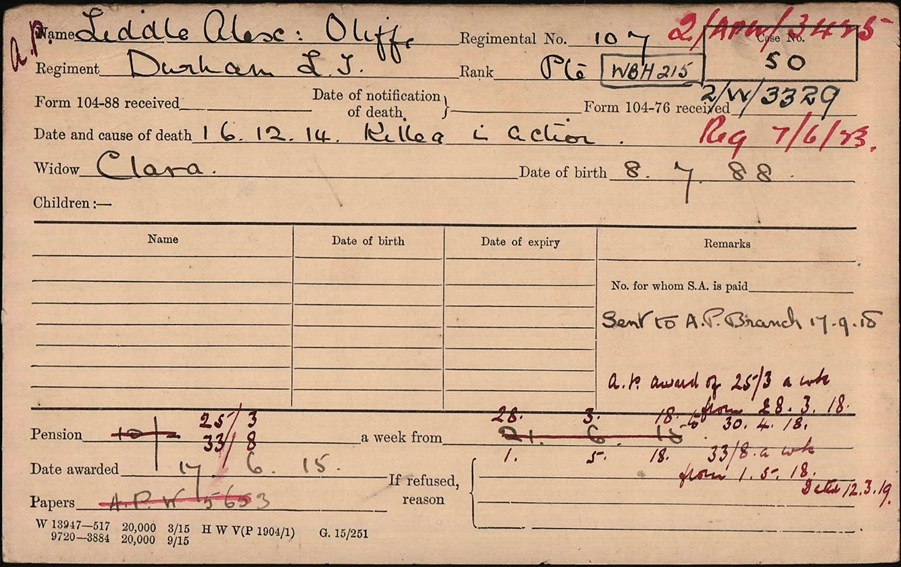 A.P. Name Liddle Alex: Oliffe Regimental No. 107 2/APW/3425 Case No. 50
Regiment Durham L.I. Rank Pte WBH 215
Form 104-88 received Date of notification of death } Form 104-76 received 2/W/3329
Date and cause of death 16.12.14. Killed in action. Reg 7/6/23.
Widow Clara. Date of birth 8. 7. 88.
Children:—
Name Date of birth Date of expiry Remarks
No. for whom S.A. is paid
Sent to A.P. Branch 17.9.18
A.P. award of 25/3 a wk
from 28.3.18.
25/3 28. 3. 18. to 30.4.18.
Pension 10/- 33/8 a week from 21. 6. 15
1. 5. 18. 33/8 a wk
from 1.5.18.
Date awarded 17 6. 15. If refused, reason
Dated 12.3.19.
Papers A.P.W 5653
W 13947—517 20,000 3/15 H W V(P 1904/1) G. 15/251
9720—3884 20,000 9/15